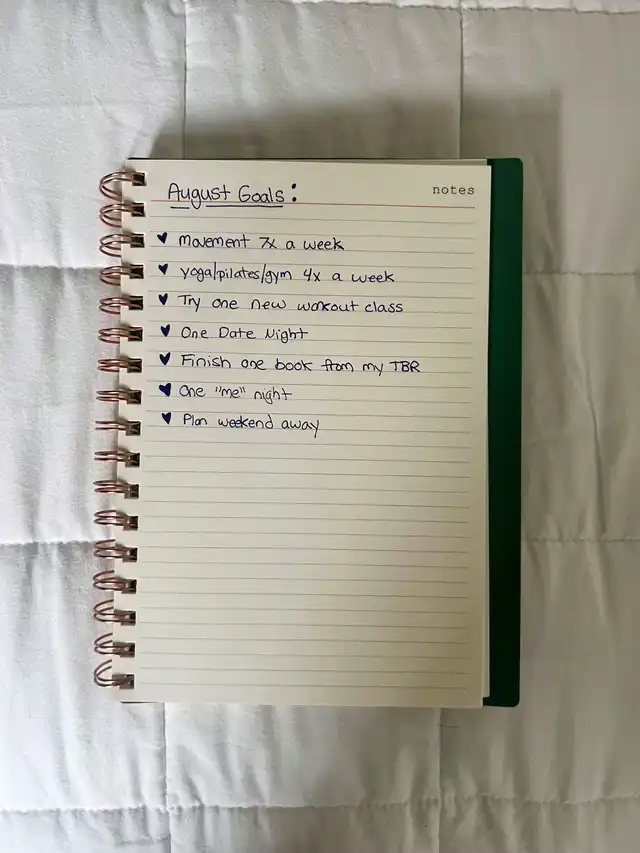 notes
August Goals:
♥ Movement 7x a week
♥ yoga/pilates/gym 4x a week
♥ Try one new workout class
♥ One Date Night
♥ Finish one book from my TBR
♥ One "me" night
♥ Plan weekend away